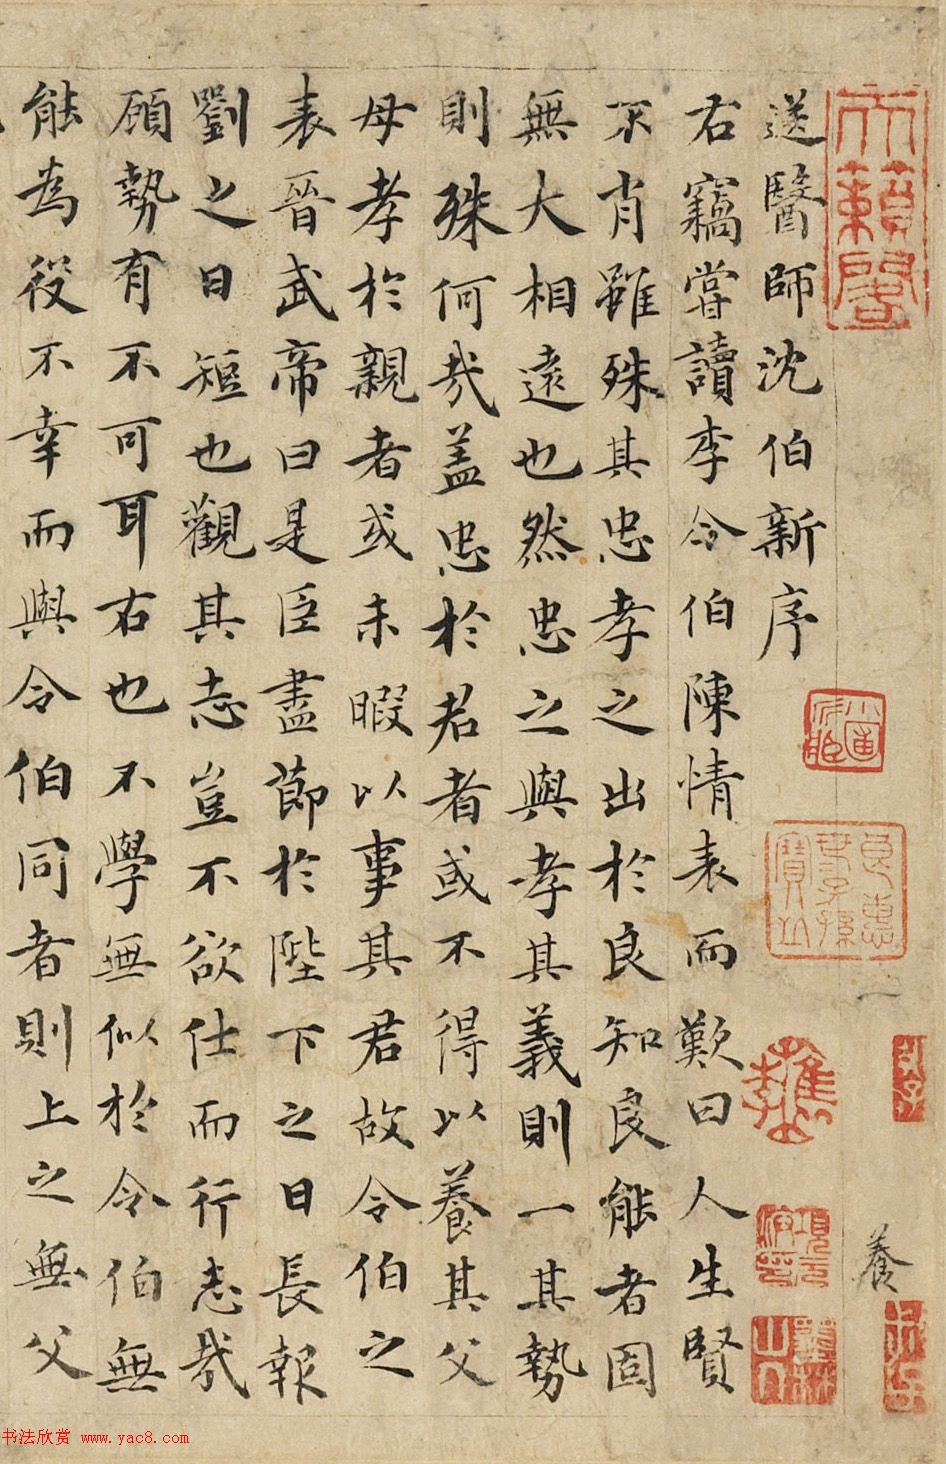 送醫師沈伯新序
右竊嘗讀李令伯陳情表而歎曰人生賢
不肖雖殊其忠孝之出於良知良能者固
無大相遠也然忠之與孝其義則一其勢
則殊何哉蓋忠於君者或不得以養其父
母孝於親者或未暇以事其君故令伯之
表晉武帝曰是臣盡節於陛下之日長報
劉之日短也觀其志豈不欲仕而行志哉
顧勢有不可耳右也不學無似於令伯無
能為役不幸而與令伯同者則上之無父
天籟閣
養
书法欣赏 www.yac8.com